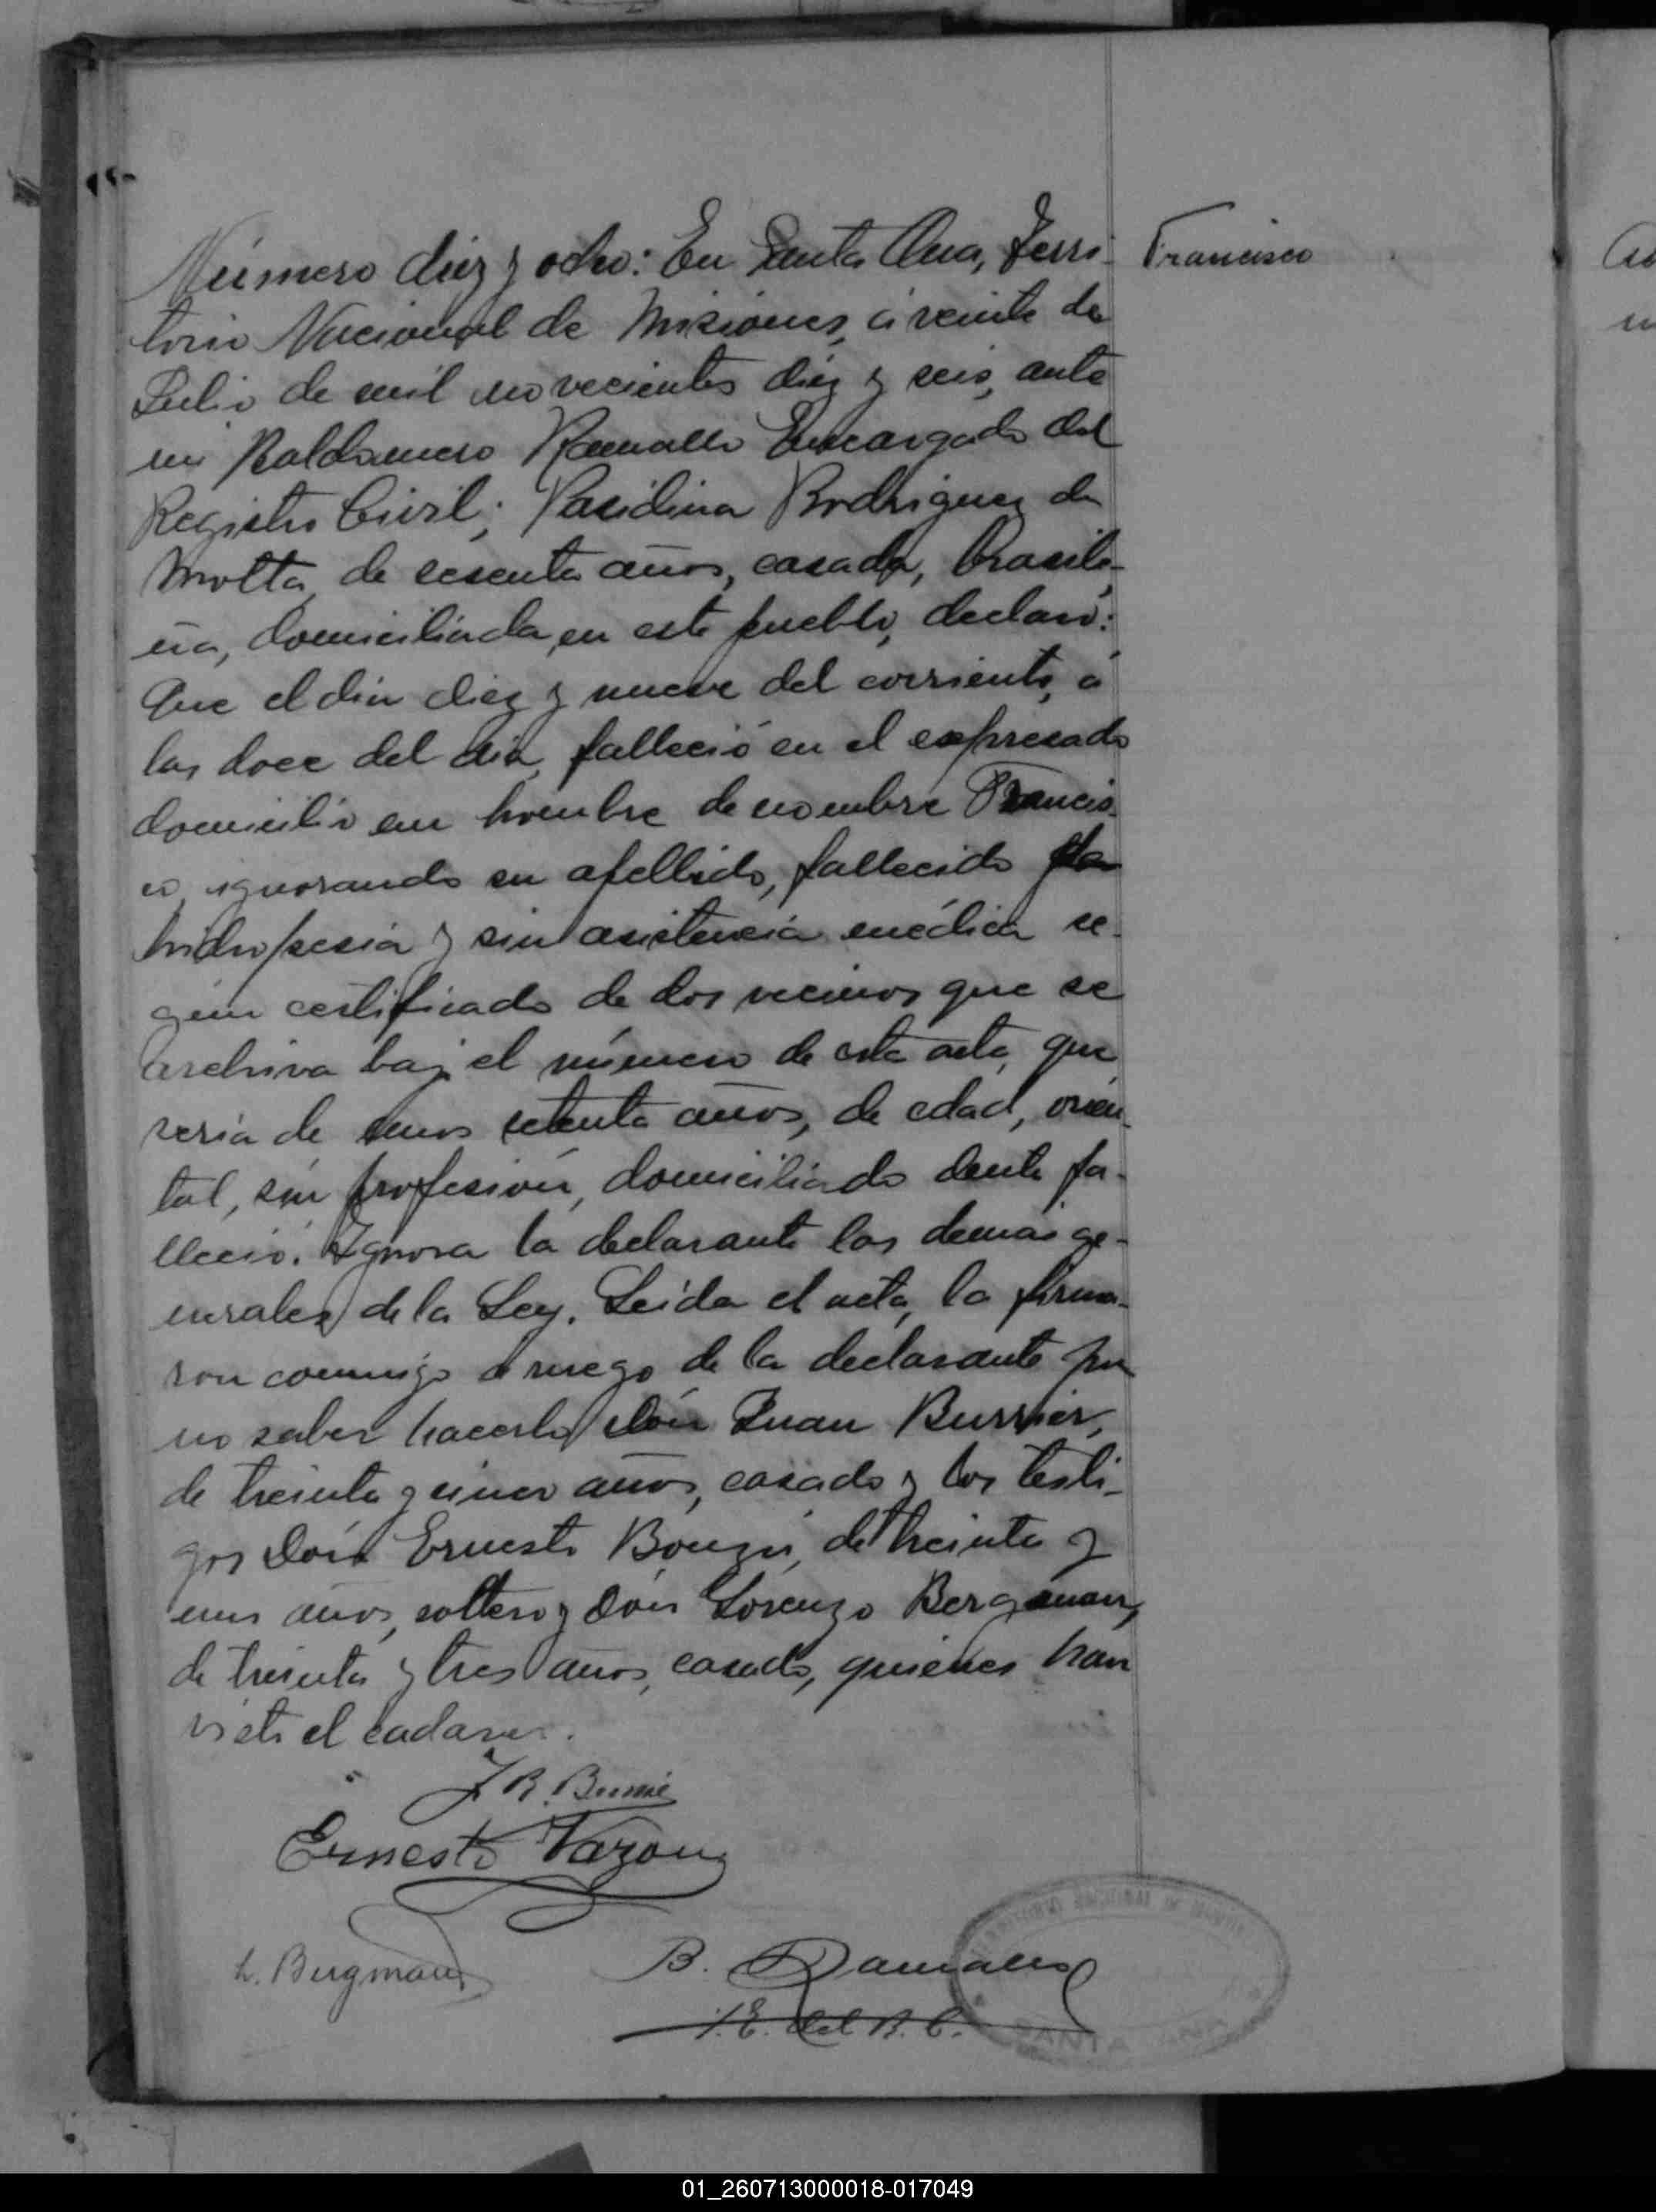 Número diez y ocho: En Santa Ana, Terri-
torio Nacional de Misiones, á veinte de
Julio de mil novecientos diez y seis, ante
mi Baldomero Ramallo Encargado del
Registro Civil; Pasidina Rodriguez de
Motta, de sesenta años, casada, brasile-
ña, domiciliada en este pueblo, declaró:
Que el dia diez y nueve del corriente, á
las doce del dia, falleció en el expresado
domicilio un hombre de nombre Francis-
co, ignorando su apellido, fallecido por
hidropesia y sin asistencia médica se-
gún certificado de dos vecinos que se
archiva bajo el número de esta acta, que
seria de unos setenta años, de edad, orien-
tal, sin profesión, domiciliado donde fa-
lleció. Ignora la declarante las demás ge-
nerales de la Ley. Leida el acta, la firma-
ron conmigo á ruego de la declarante por
no saber hacerlo Don Juan Burrier,
de treinta y cinco años, casado y los testi-
gos Don Ernesto de treinta y
un años, soltero y Don Lorenzo Bergman,
de treinta y tres años, casado, quienes han
visto el cadaver.
Francisco
J R. Burrié
Ernesto
L. Bergman
B. Ramallo
E. del R. C.
TERRITORIO NACIONAL DE MISIONES
SANTA ANA
01_260713000018-017049